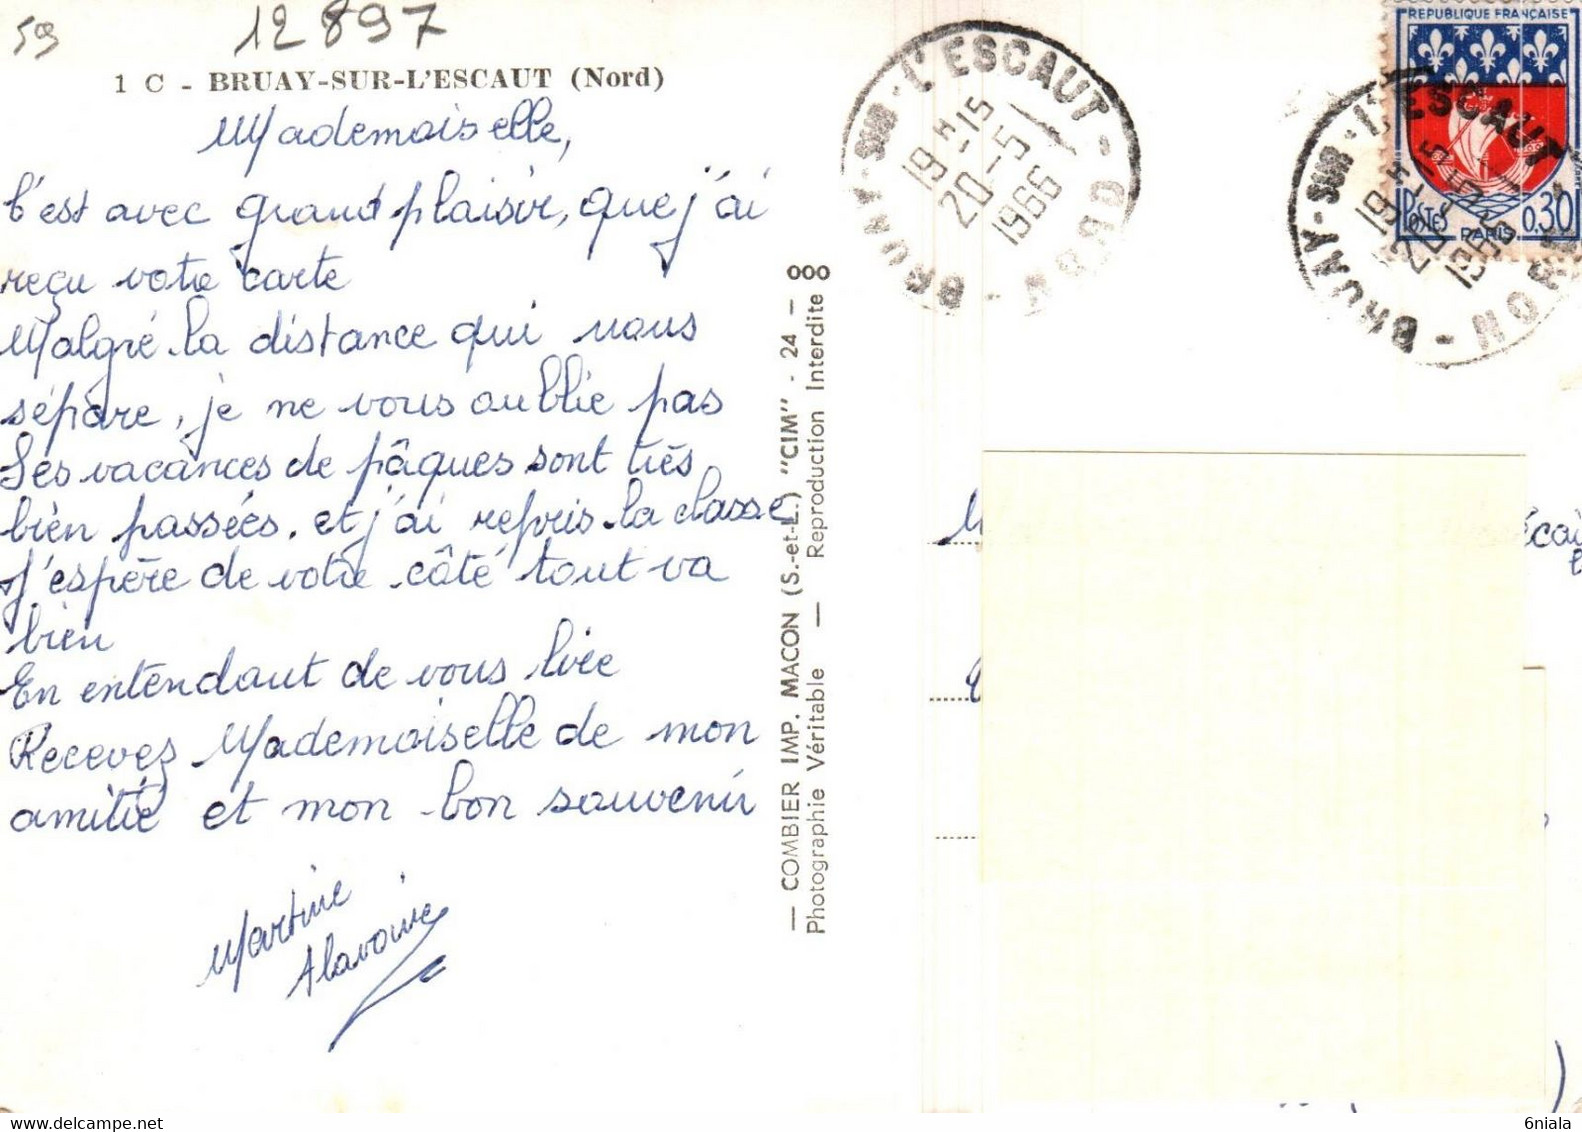 59
12897
1 C - BRUAY-SUR-L'ESCAUT (Nord)
Mademoiselle,
C'est avec grand plaisir, que j'ai
reçu votre carte
Malgré la distance qui nous
sépare, je ne vous oublie pas
Les vacances de pâques sont très
bien passées. et j'ai repris la classe
J'espère de votre côté tout va
bien
En entendant de vous lire
Recevez Mademoiselle de mon
amitié et mon bon souvenir
Martine
Alavoine
— COMBIER IMP. MACON (S.-et-L.) "CIM" - 24 - 000
Photographie Véritable — Reproduction Interdite
BRUAY-SUR-L'ESCAUT - NORD
19H-15
20-5
1966
REPUBLIQUE FRANÇAISE
POSTES
PARIS
0,30
BRUAY-SUR-L'ESCAUT - NORD
19H-15
20-5
1966
6niala